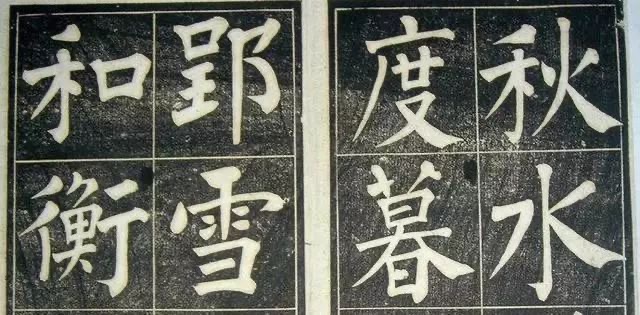 秋水
度暮
郢雪
和衡